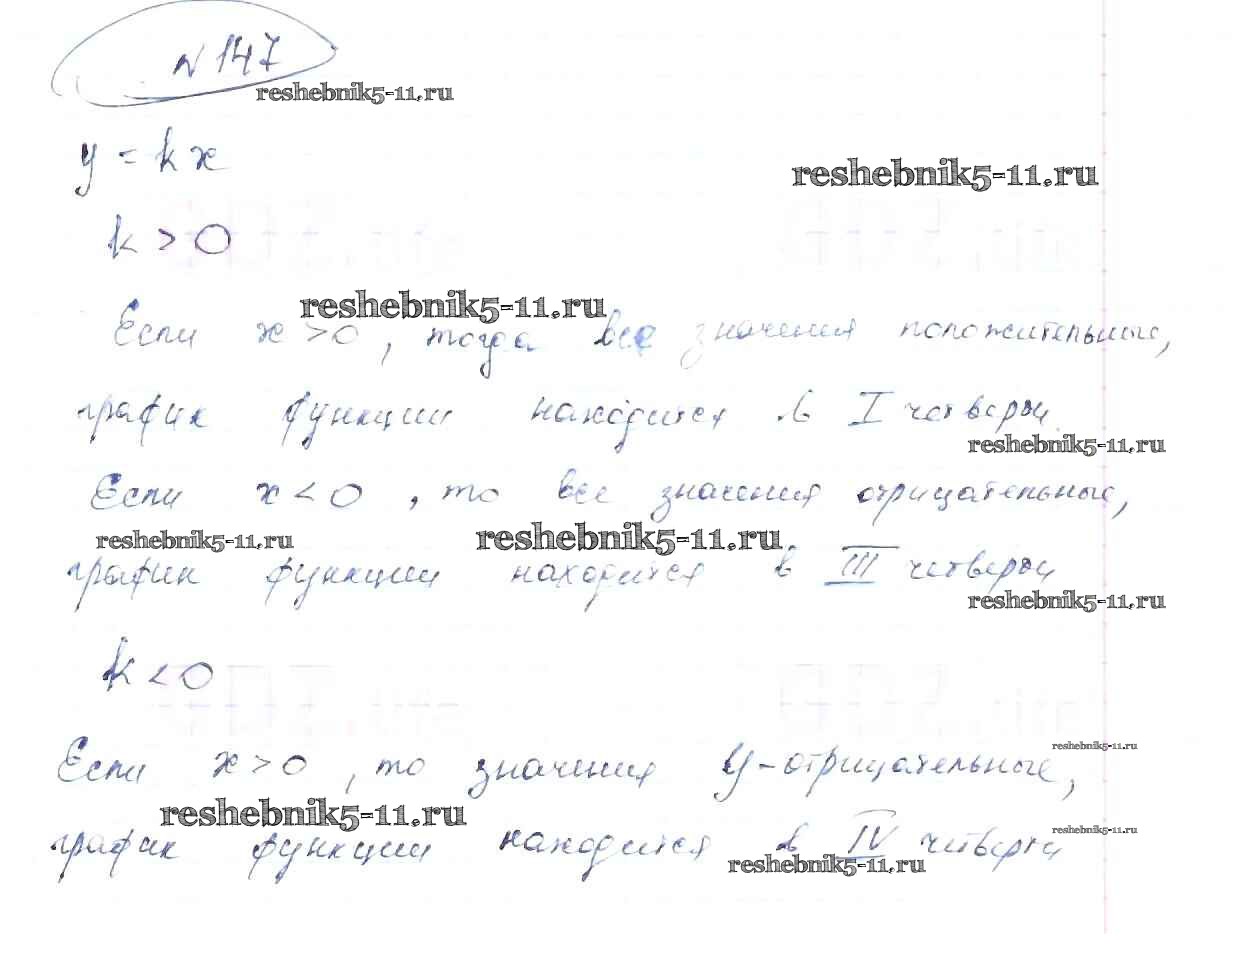 №147
reshebnik5-11.ru
y = kx
reshebnik5-11.ru
k > 0
reshebnik5-11.ru
Если x > 0, тогда все значения положительные,
график функции находится в I четверти
reshebnik5-11.ru
Если x < 0, то все значения отрицательные,
reshebnik5-11.ru reshebnik5-11.ru
график функции находится в III четверти
reshebnik5-11.ru
k < 0
reshebnik5-11.ru
Если x > 0, то значения y - отрицательные,
reshebnik5-11.ru
reshebnik5-11.ru
график функции находится в IV четверти
reshebnik5-11.ru